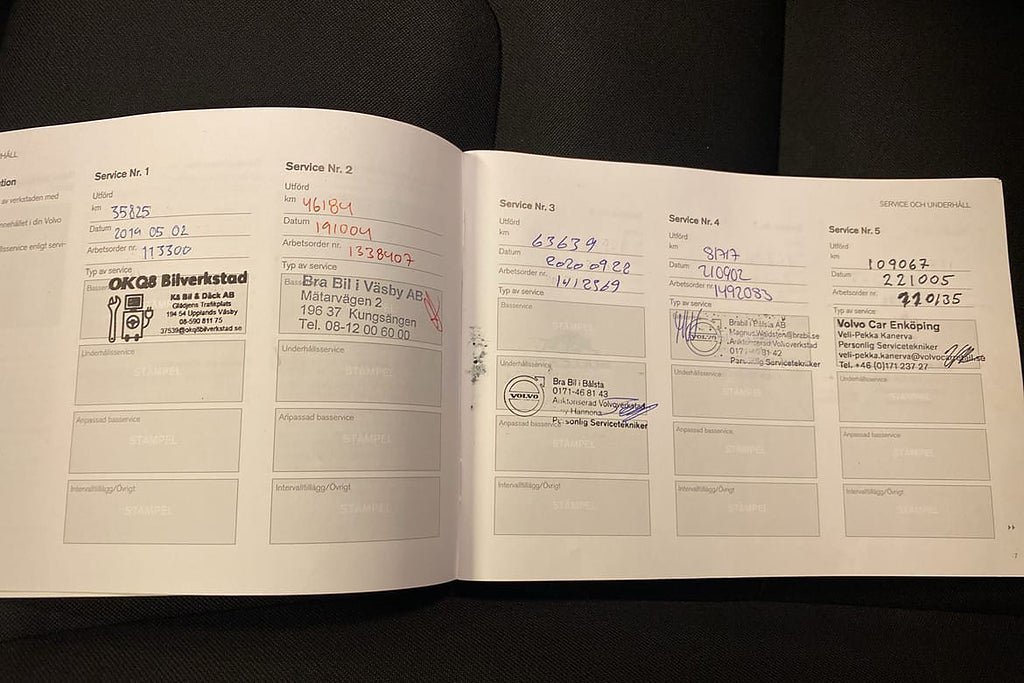 HÅLL
tion
av verkstaden med
nnehållet i din Volvo
llsservice enligt servi-
Service Nr. 1
Utförd
km 35825
Datum 2019 05 02
Arbetsorder nr. 113300
Typ av service
Basse
OKQ8 Bilverkstad
K8 Bil & Däck AB
Glädjens Trafikplats
194 54 Upplands Väsby
08-590 811 75
37539@okq8bilverkstad.se
Underhållsservice
STÄMPEL
Anpassad basservice
STÄMPEL
Intervalltillägg/Övrigt
STÄMPEL
Service Nr. 2
Utförd
km 46184
Datum 191004
Arbetsorder nr. 1338407
Typ av service
Bra Bil i Väsby AB
Mätarvägen 2
196 37 Kungsängen
Tel. 08-12 00 60 00
Underhållsservice
STÄMPEL
Anpassad basservice
STÄMPEL
Intervalltillägg/Övrigt
STÄMPEL
Service Nr. 3
Utförd
km 63639
Datum 2020 09 22
Arbetsorder nr. 1412569
Typ av service
Basservice
STÄMPEL
Underhållsservice
VOLVO
Bra Bil i Bålsta
0171-46 81 43
Auktoriserad Volvoverkstad
Hannona
Personlig Servicetekniker
Anpassad basservice
STÄMPEL
Intervalltillägg/Övrigt
STÄMPEL
Service Nr. 4
Utförd
km 81717
Datum 210902
Arbetsorder nr. 1492083
Typ av service
VOLVO
Brabil i Bålsta AB
Auktoriserad Volvoverkstad
Personlig Servicetekniker
Underhållsservice
STÄMPEL
Anpassad basservice
STÄMPEL
Intervalltillägg/Övrigt
STÄMPEL
SERVICE OCH UNDERHÅLL
Service Nr. 5
Utförd
km 109067
Datum 221005
Arbetsorder nr.
Typ av service
Volvo Car Enköping
Veli-Pekka Kanerva
Personlig Servicetekniker
veli-pekka.kanerva@volvocarsbil.se
Tel. +46 (0)171 237 27
Underhållsservice
STÄMPEL
Anpassad basservice
STÄMPEL
Intervalltillägg/Övrigt
STÄMPEL
7